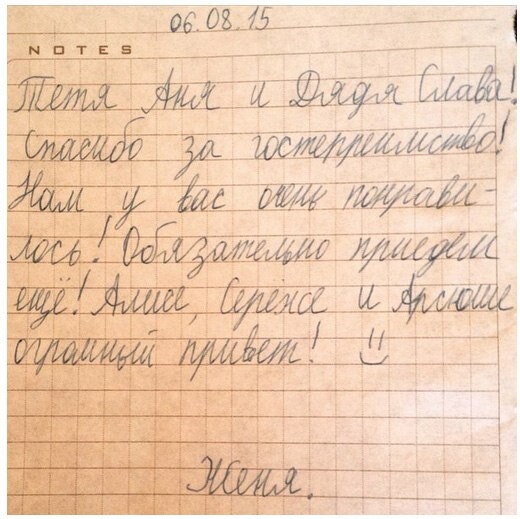 06.08.15
NOTES
Тетя Аня и Дядя Слава!
Спасибо за гостеприимство!
Нам у вас очень понрави-
лось! Обязательно приедем
ещё! Алисе, Серёже и Арсюше
огромный привет! :)
Женя.